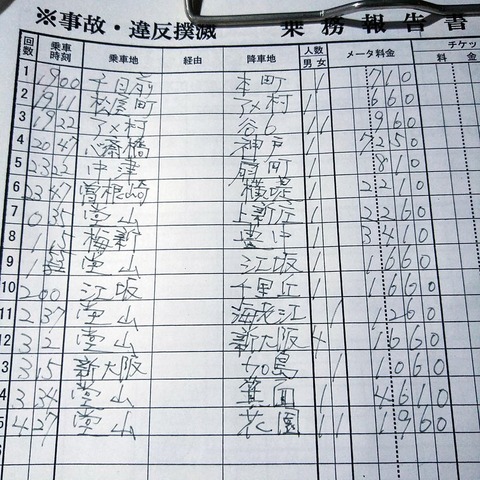 ※事故・違反撲滅 乗務報告書
回数 乗車時刻 乗車地 経由 降車地 人数 男 女 メータ料金 チケッ 料 金
1 1900 千日前 本町 1 710
2 1911 松屋町 アメ村 1 660
3 1922 アメ村 谷6 1 1 960
4 2047 心斎橋 神戸 1 7250
5 2322 中津 扇町 1 810
6 2347 曽根崎 横堤 1 2210
7 035 堂山 上新庄 1 2260
8 115 梅新 豊中 1 3410
9 堂山 江坂 1 1660
10 200 江坂 千里丘 1 1660
11 237 堂山 海老江 1 1260
12 32 堂山 新大阪 4 1660
3 315 新大阪 加島 1 1060
4 334 堂山 箕面 1 4610
5 427 堂山 花園 1 1 1960